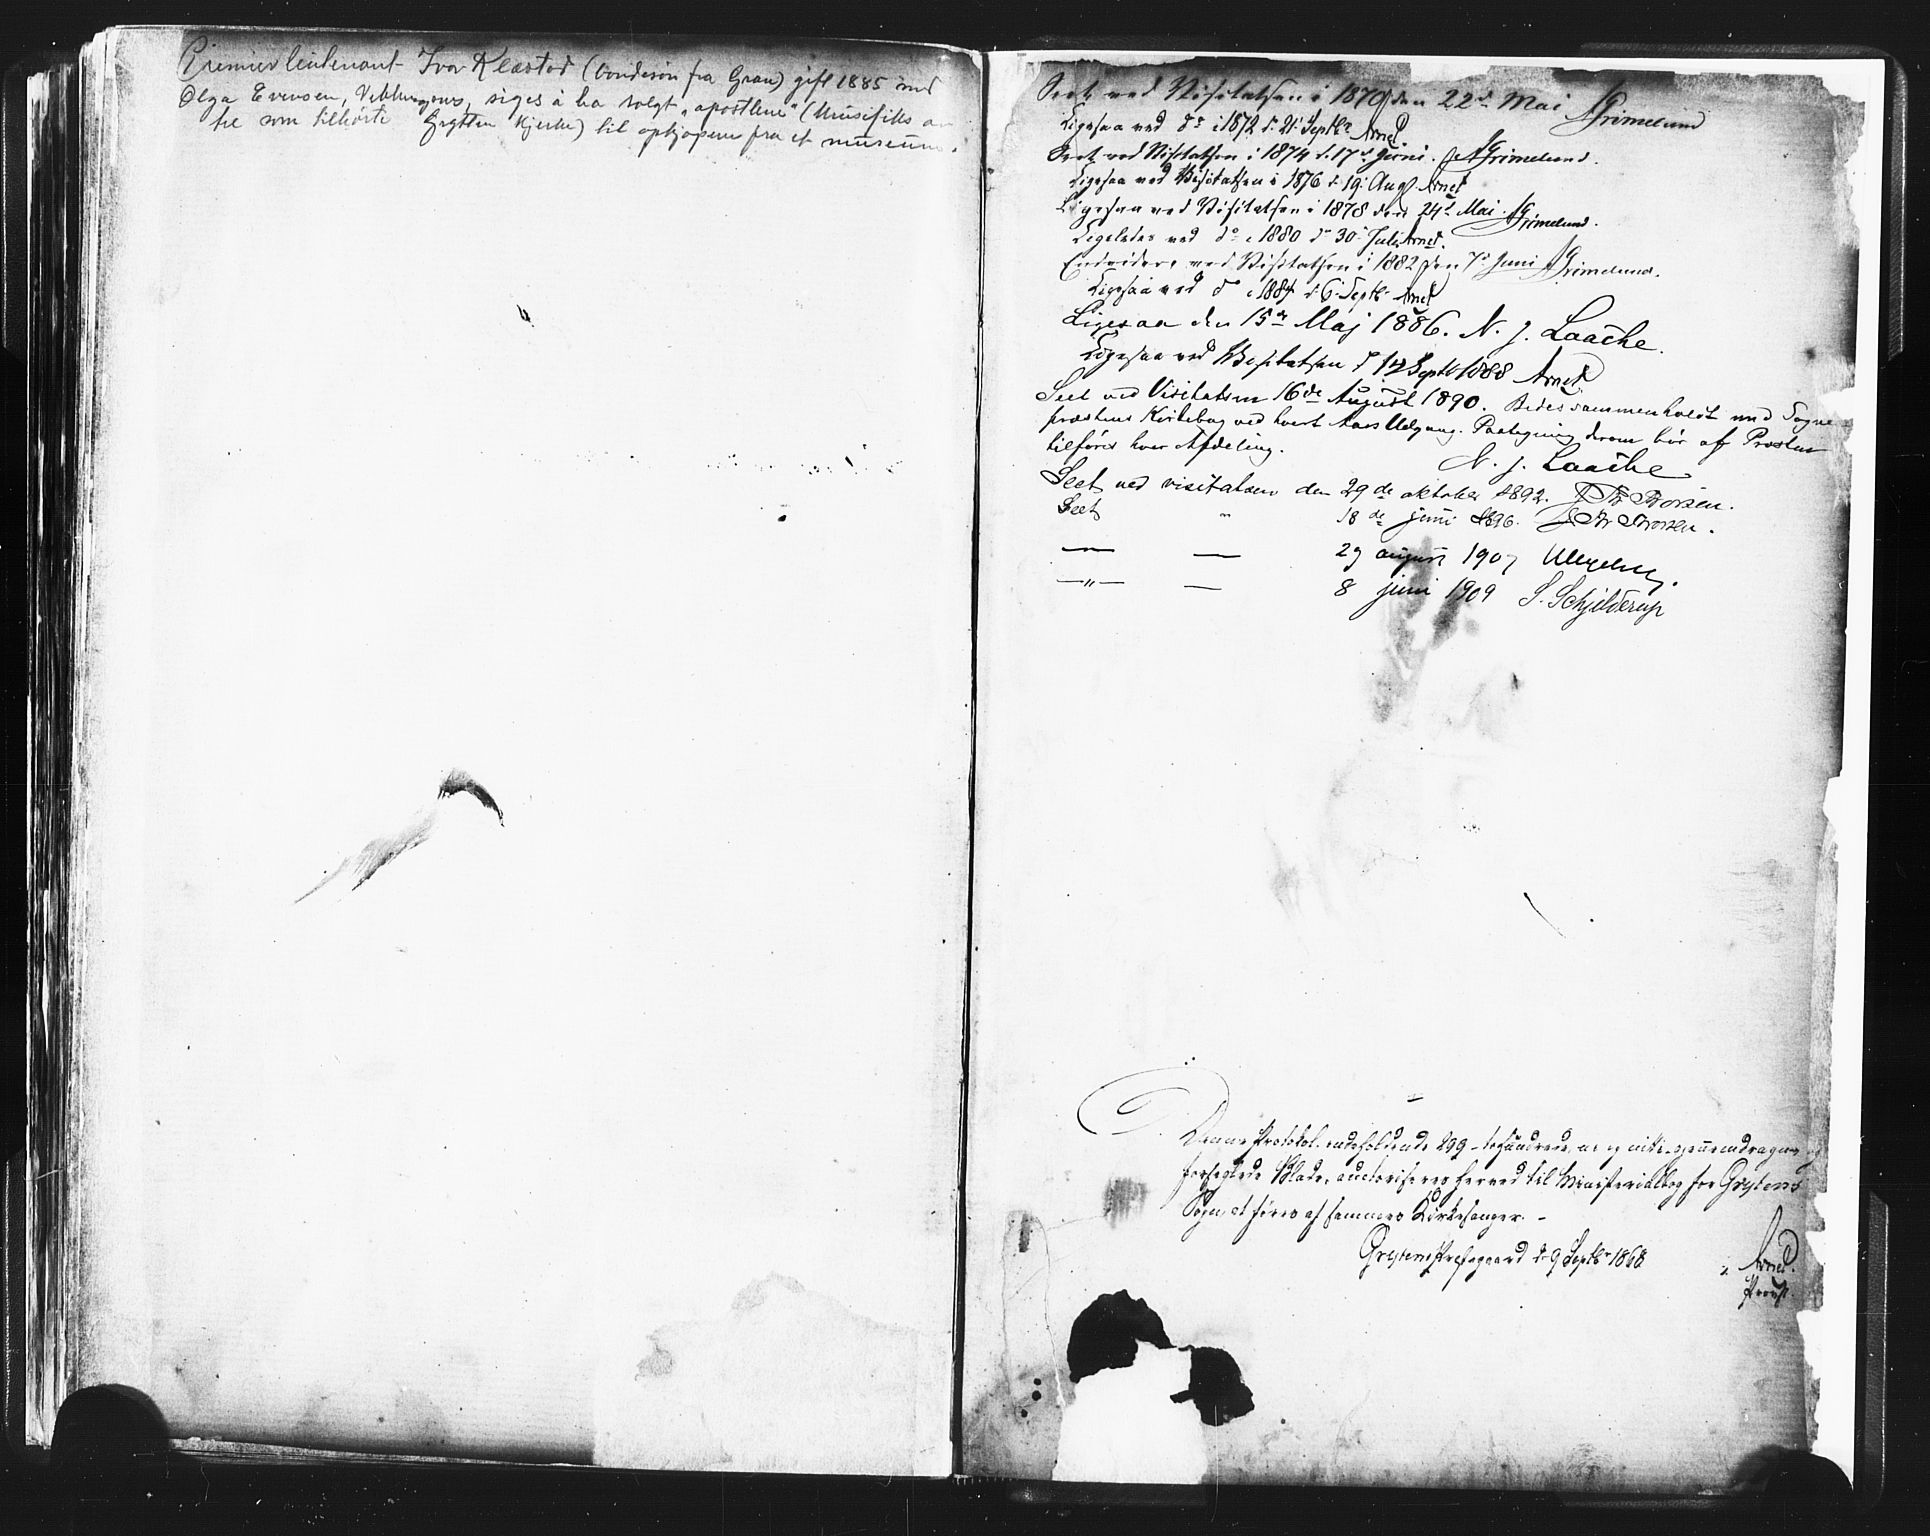 Premierleutenant Ivar Klæstad (bondesön fra Gran) gift 1885 med
Olga Evensen, Veblungsnes, siges å ha solgt „apostlene" (krusifiks av
tre som tilhörte Grytten kjerke) til opkjöpere fra et museum.
Seet ved Visitatsen i 1870 den 22d Mai AGrimelund
Ligesaa ved do i 1872 d. 21. Septbr Arnet
Seet ved Visitatsen i 1874 d. 17d Juni. AGrimelund.
Ligesaa ved Visitatsen i 1876 d. 19. Aug. Arnet
Ligesaa ved Visitatsen i 1878 den 24d Mai. AGrimelund.
Ligeledes ved do i 1880 d. 30. Juli Arnet.
Endvidere ved Visitatsen i 1882 den 7d Juni AGrimelund.
Ligesaa ved do i 1884 d. 6. Septb. Arnet
Ligesaa den 15de Maj 1886. N. J. Laache.
Ligesaa ved Visitatsen d. 14 Septb 1888 Arnet
Seet ved Visitatsen 16de August 1890. Bedes sammenholdt med Sogne-
præstens Kirkebog ved hvert Aars Udgang. Paategning derom bör af Provsten
tilföres hver Afdeling.
N. J. Laache
Seet ved visitatsen den 29de oktober 1892.
Seet " 18de juni 1896.
— — 29 august 1907
—"— — 8 juni 1909 S. Schjelderup
Denne Protokol, indeholdende 299 – tohundrede, ni og nitti – gjennemdragne og
forseglede Blade, auctoriseres herved til Ministerialbog for Grytens
Sogn, at föres af sammes Kirkesanger. –
Grytens Præstegaard d. 9 Septbr 1868
Arnet.
Provst.